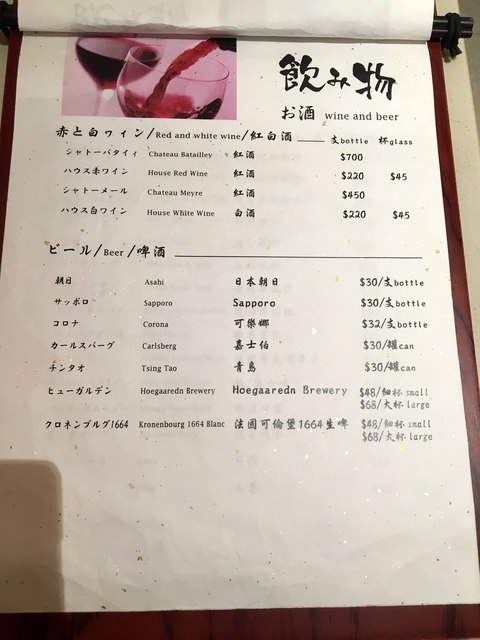 飲み物
お酒 wine and beer
赤と白ワィン/Red and white wine/紅白酒 支bottle 杯glass
シャトーバタイィ Chateau Batailley 紅酒 $700
ハウス赤ワイン House Red Wine 紅酒 $220 $45
シャトーメール Chateau Meyre 紅酒 $450
ハウス白ワイン House White Wine 白酒 $220 $45
ビール/Beer/啤酒
朝日 Asahi 日本朝日 $30/支bottle
サッポロ Sapporo Sapporo $30/支bottle
コロナ Corona 可樂娜 $32/支bottle
カールスバーグ Carlsberg 嘉士伯 $30/罐can
チンタオ Tsing Tao 青島 $30/罐can
ヒューガルデン Hoegaaredn Brewery Hoegaaredn Brewery $48/細杯 small
$68/大杯 large
クロネンブルグ1664 Kronenbourg 1664 Blanc 法國可倫堡1664生啤 $48/細杯 small
$68/大杯 large